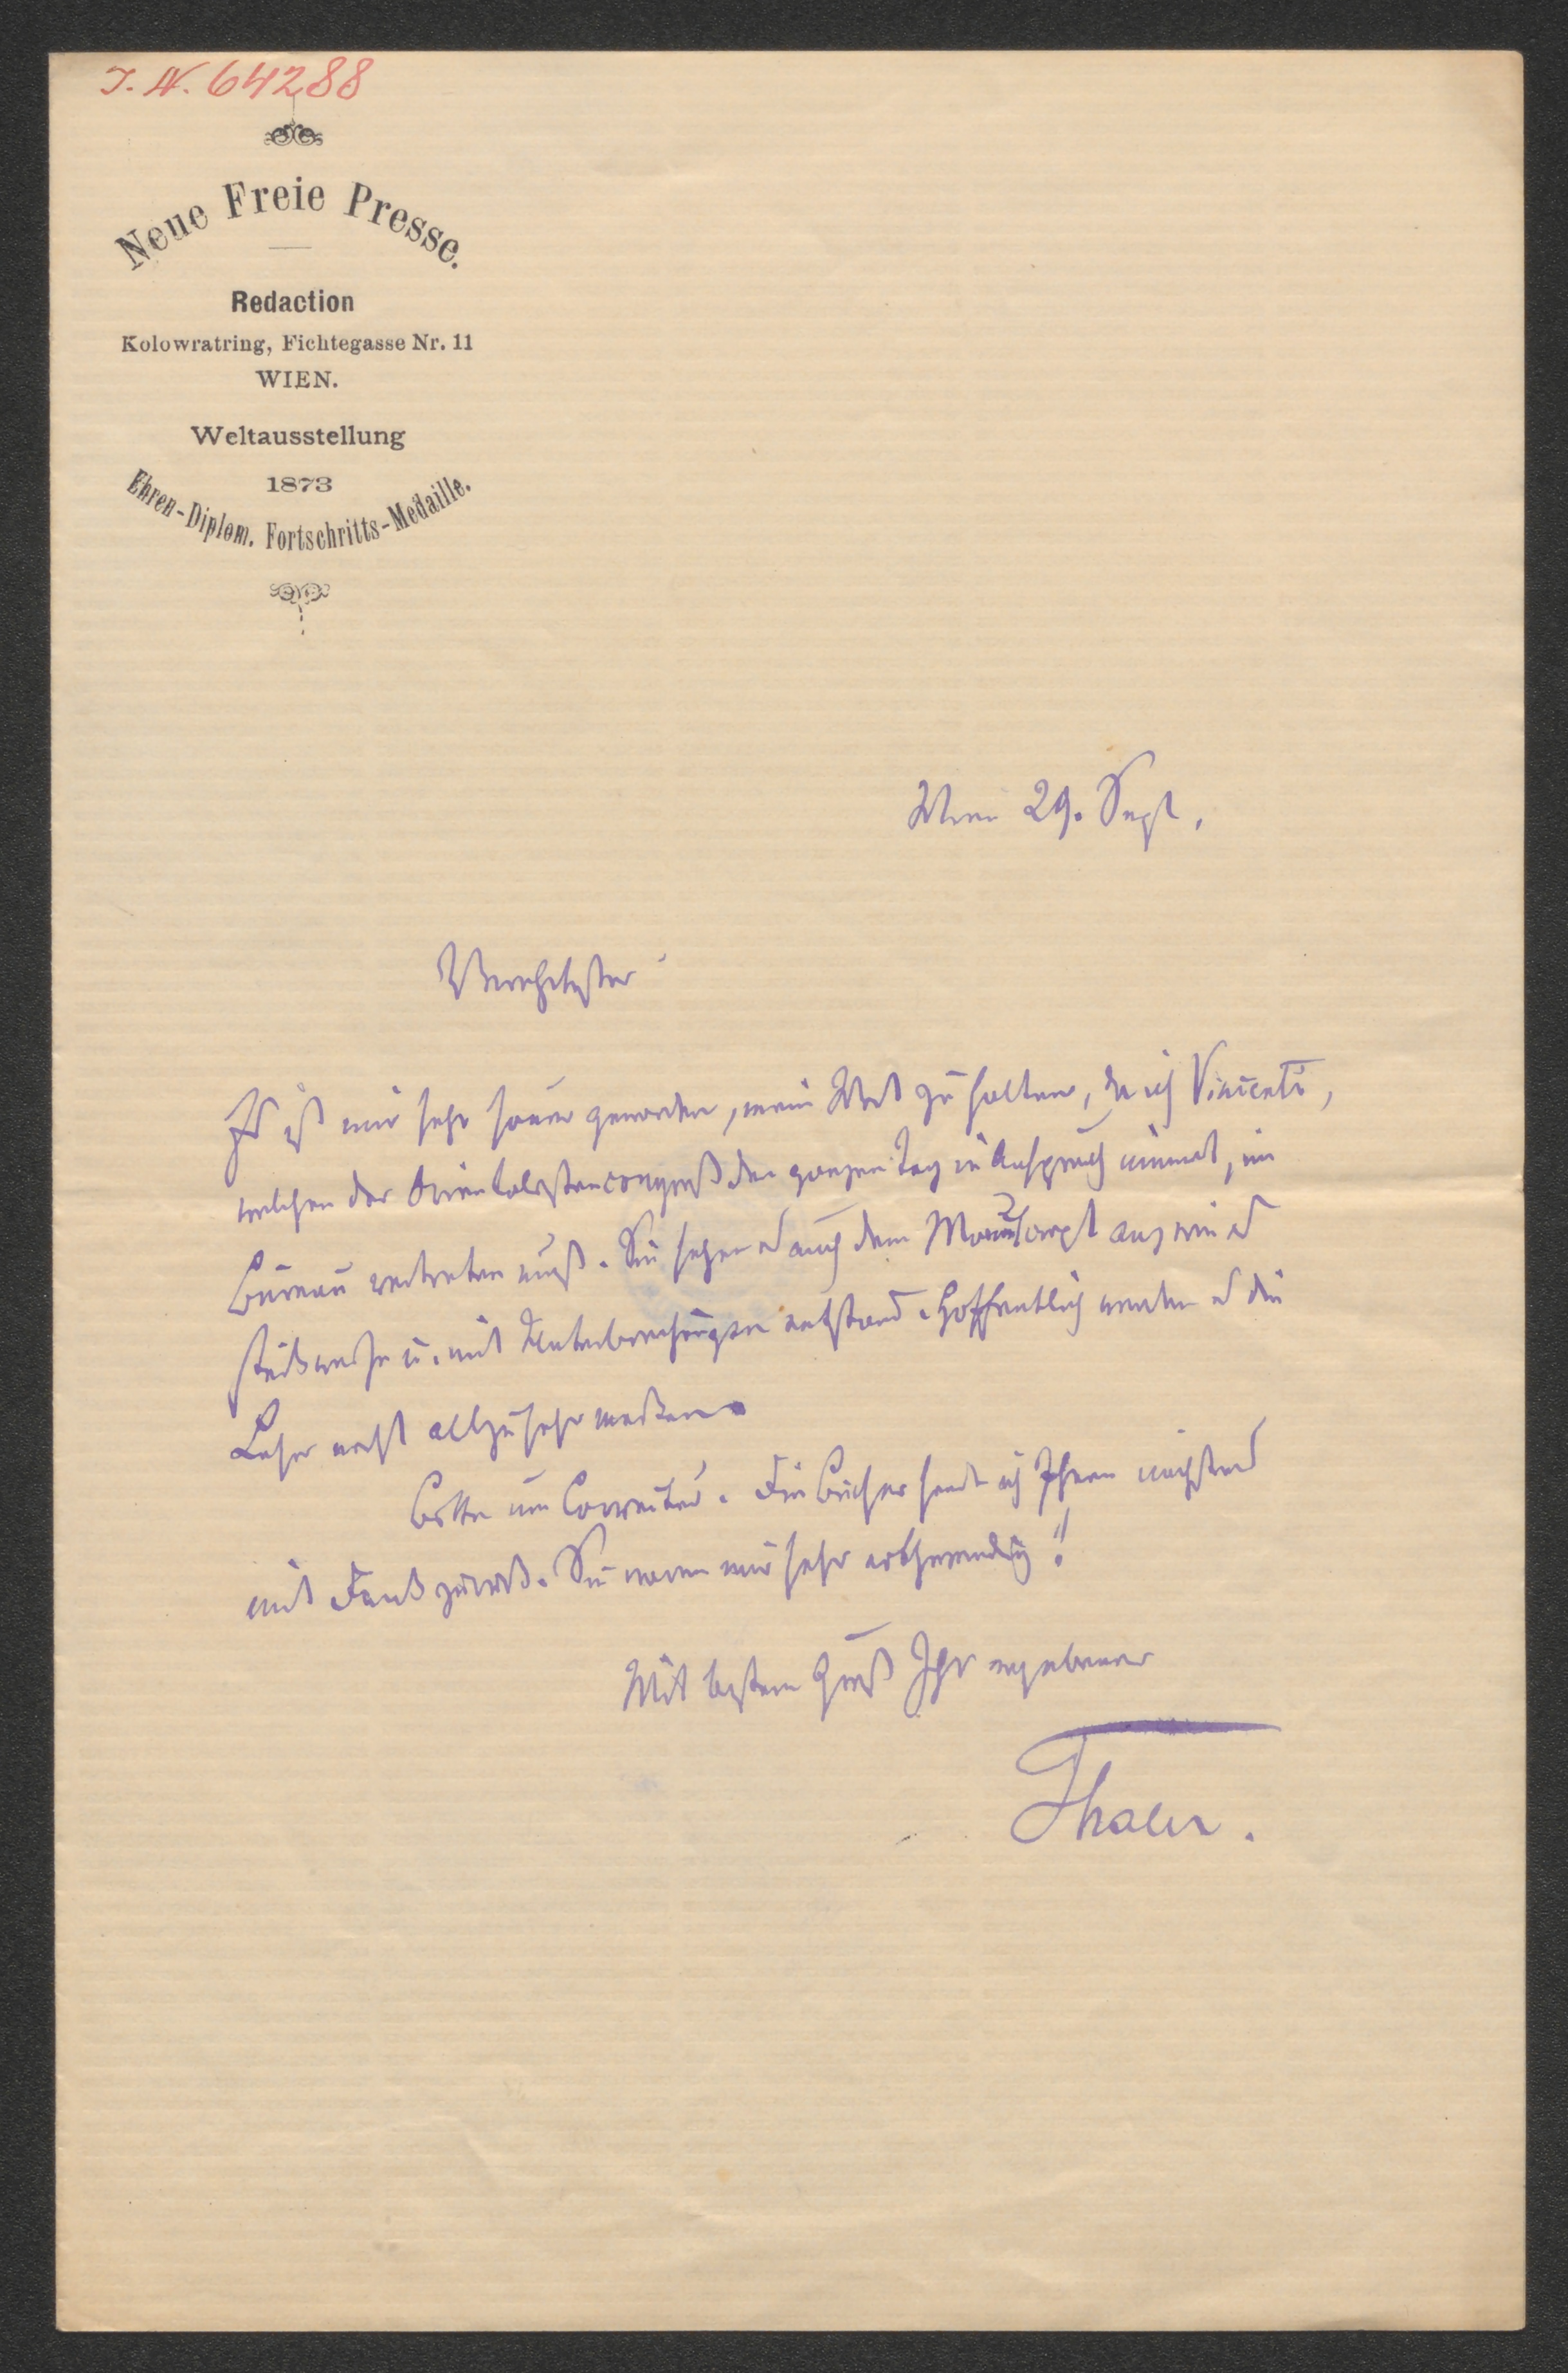 J. N. 64288
Neue Freie Presse.
Redaction
Kolowratring, Fichtegasse Nr. 11
WIEN.
Weltausstellung
1873
Ehren-Diplom. Fortschritts-Medaille.
Wien 29. Sept.
Verehrtester
Es ist mir sehr sauer geworden, mein Wort zu halten, da ich Vincenti,
welchen der Orientalistencongreß den ganzen Tag in Anspruch nimmt, im
Bureau vertreten muß. Sie sehen es auch dem Manuscript an, wie es
stückweise u. mit Unterbrechungen entstand. Hoffentlich werden es die
Leser nicht allzusehr merken.
Bitte um Correctur. Die Bücher sende ich Ihnen nächstens
mit Dank zurück. Sie waren mir sehr nothwendig!
Mit bestem Gruß Ihr ergebener
Thaler.